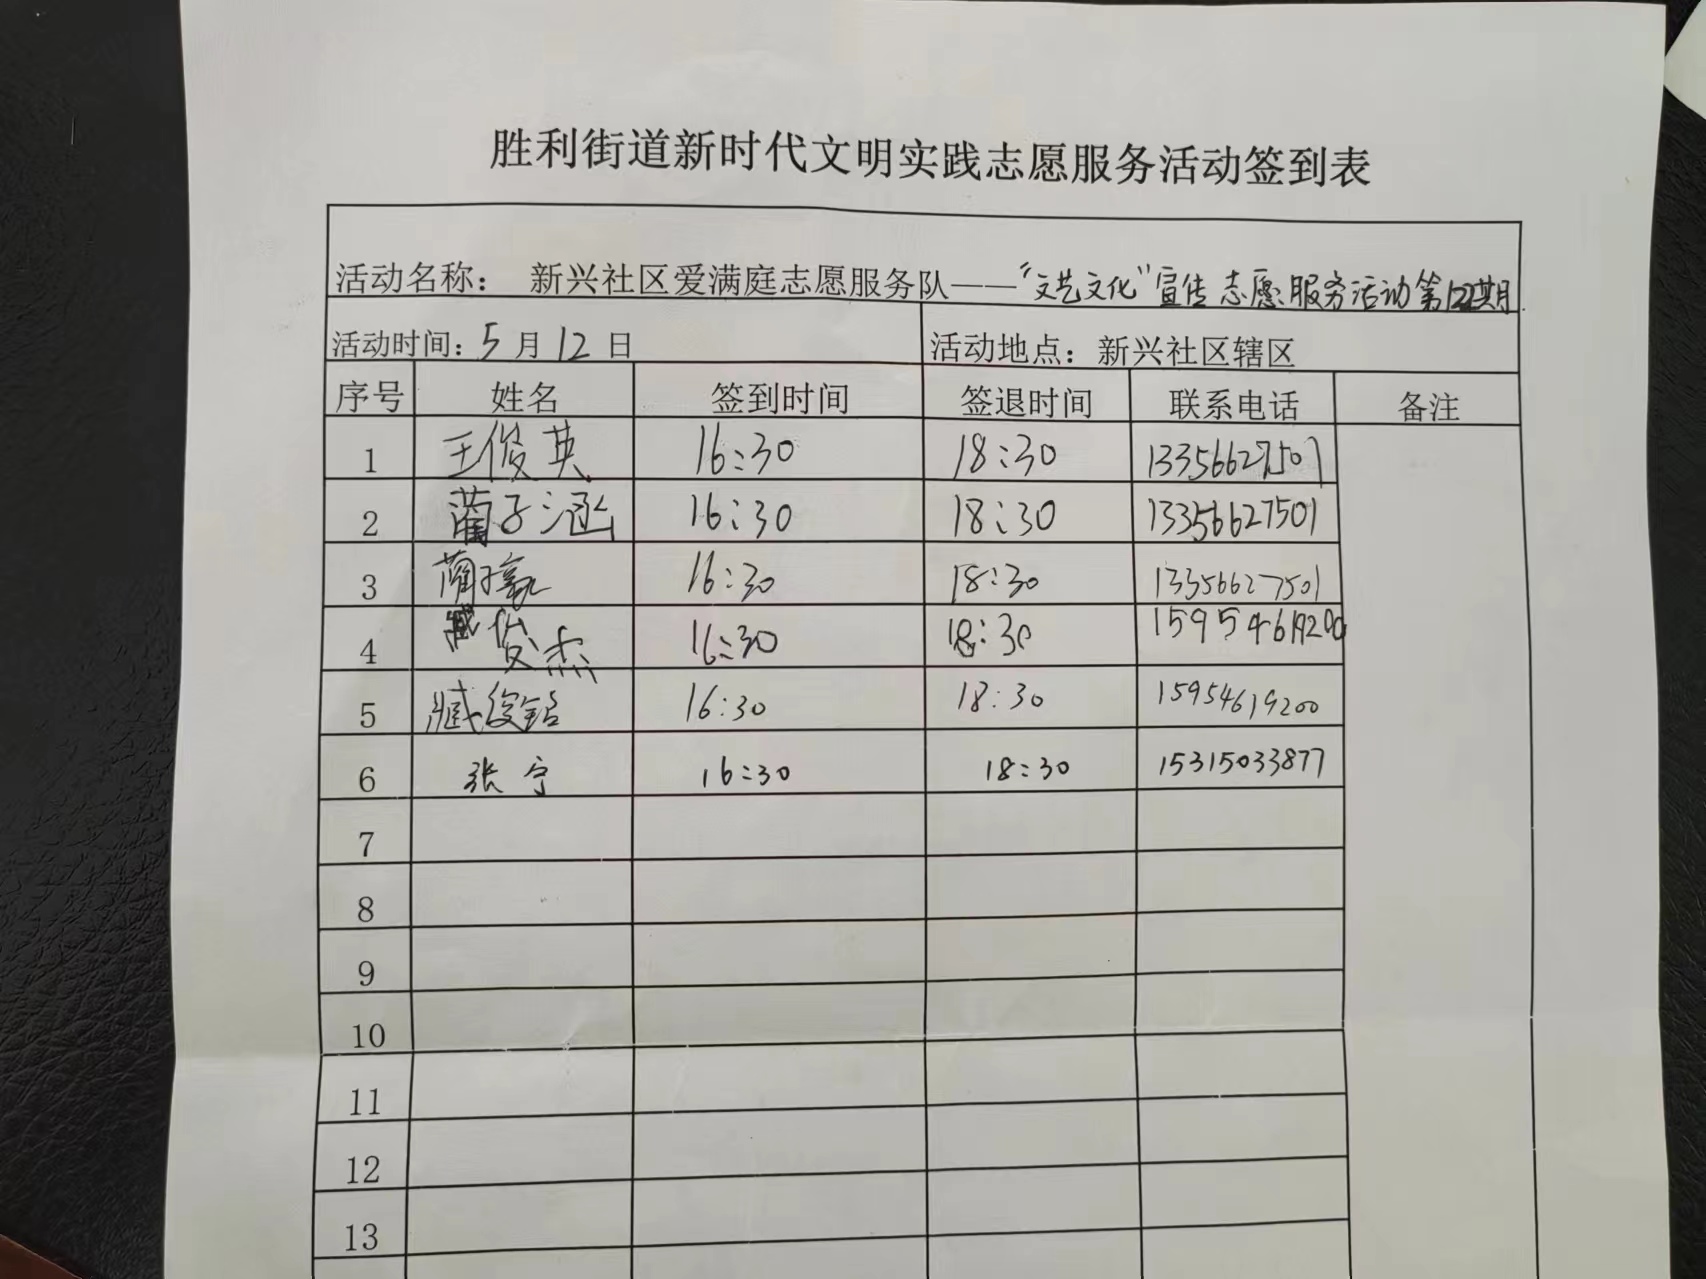 胜利街道新时代文明实践志愿服务活动签到表
活动名称： 新兴社区爱满庭志愿服务队——“文艺文化”宣传志愿服务活动第期
活动时间：5月12日 活动地点：新兴社区辖区
序号 姓名 签到时间 签退时间 联系电话 备注
1 王俊英 16:30 18:30 13356627501
2 蔺子涵 16:30 18:30 13356627501
3 蔺子氧 16:30 18:30 13356627501
4 臧俊杰 16:30 18:30 15954619200
5 臧俊铭 16:30 18:30 15954619200
6 张宁 16:30 18:30 15315033877
7
8
9
10
11
12
13